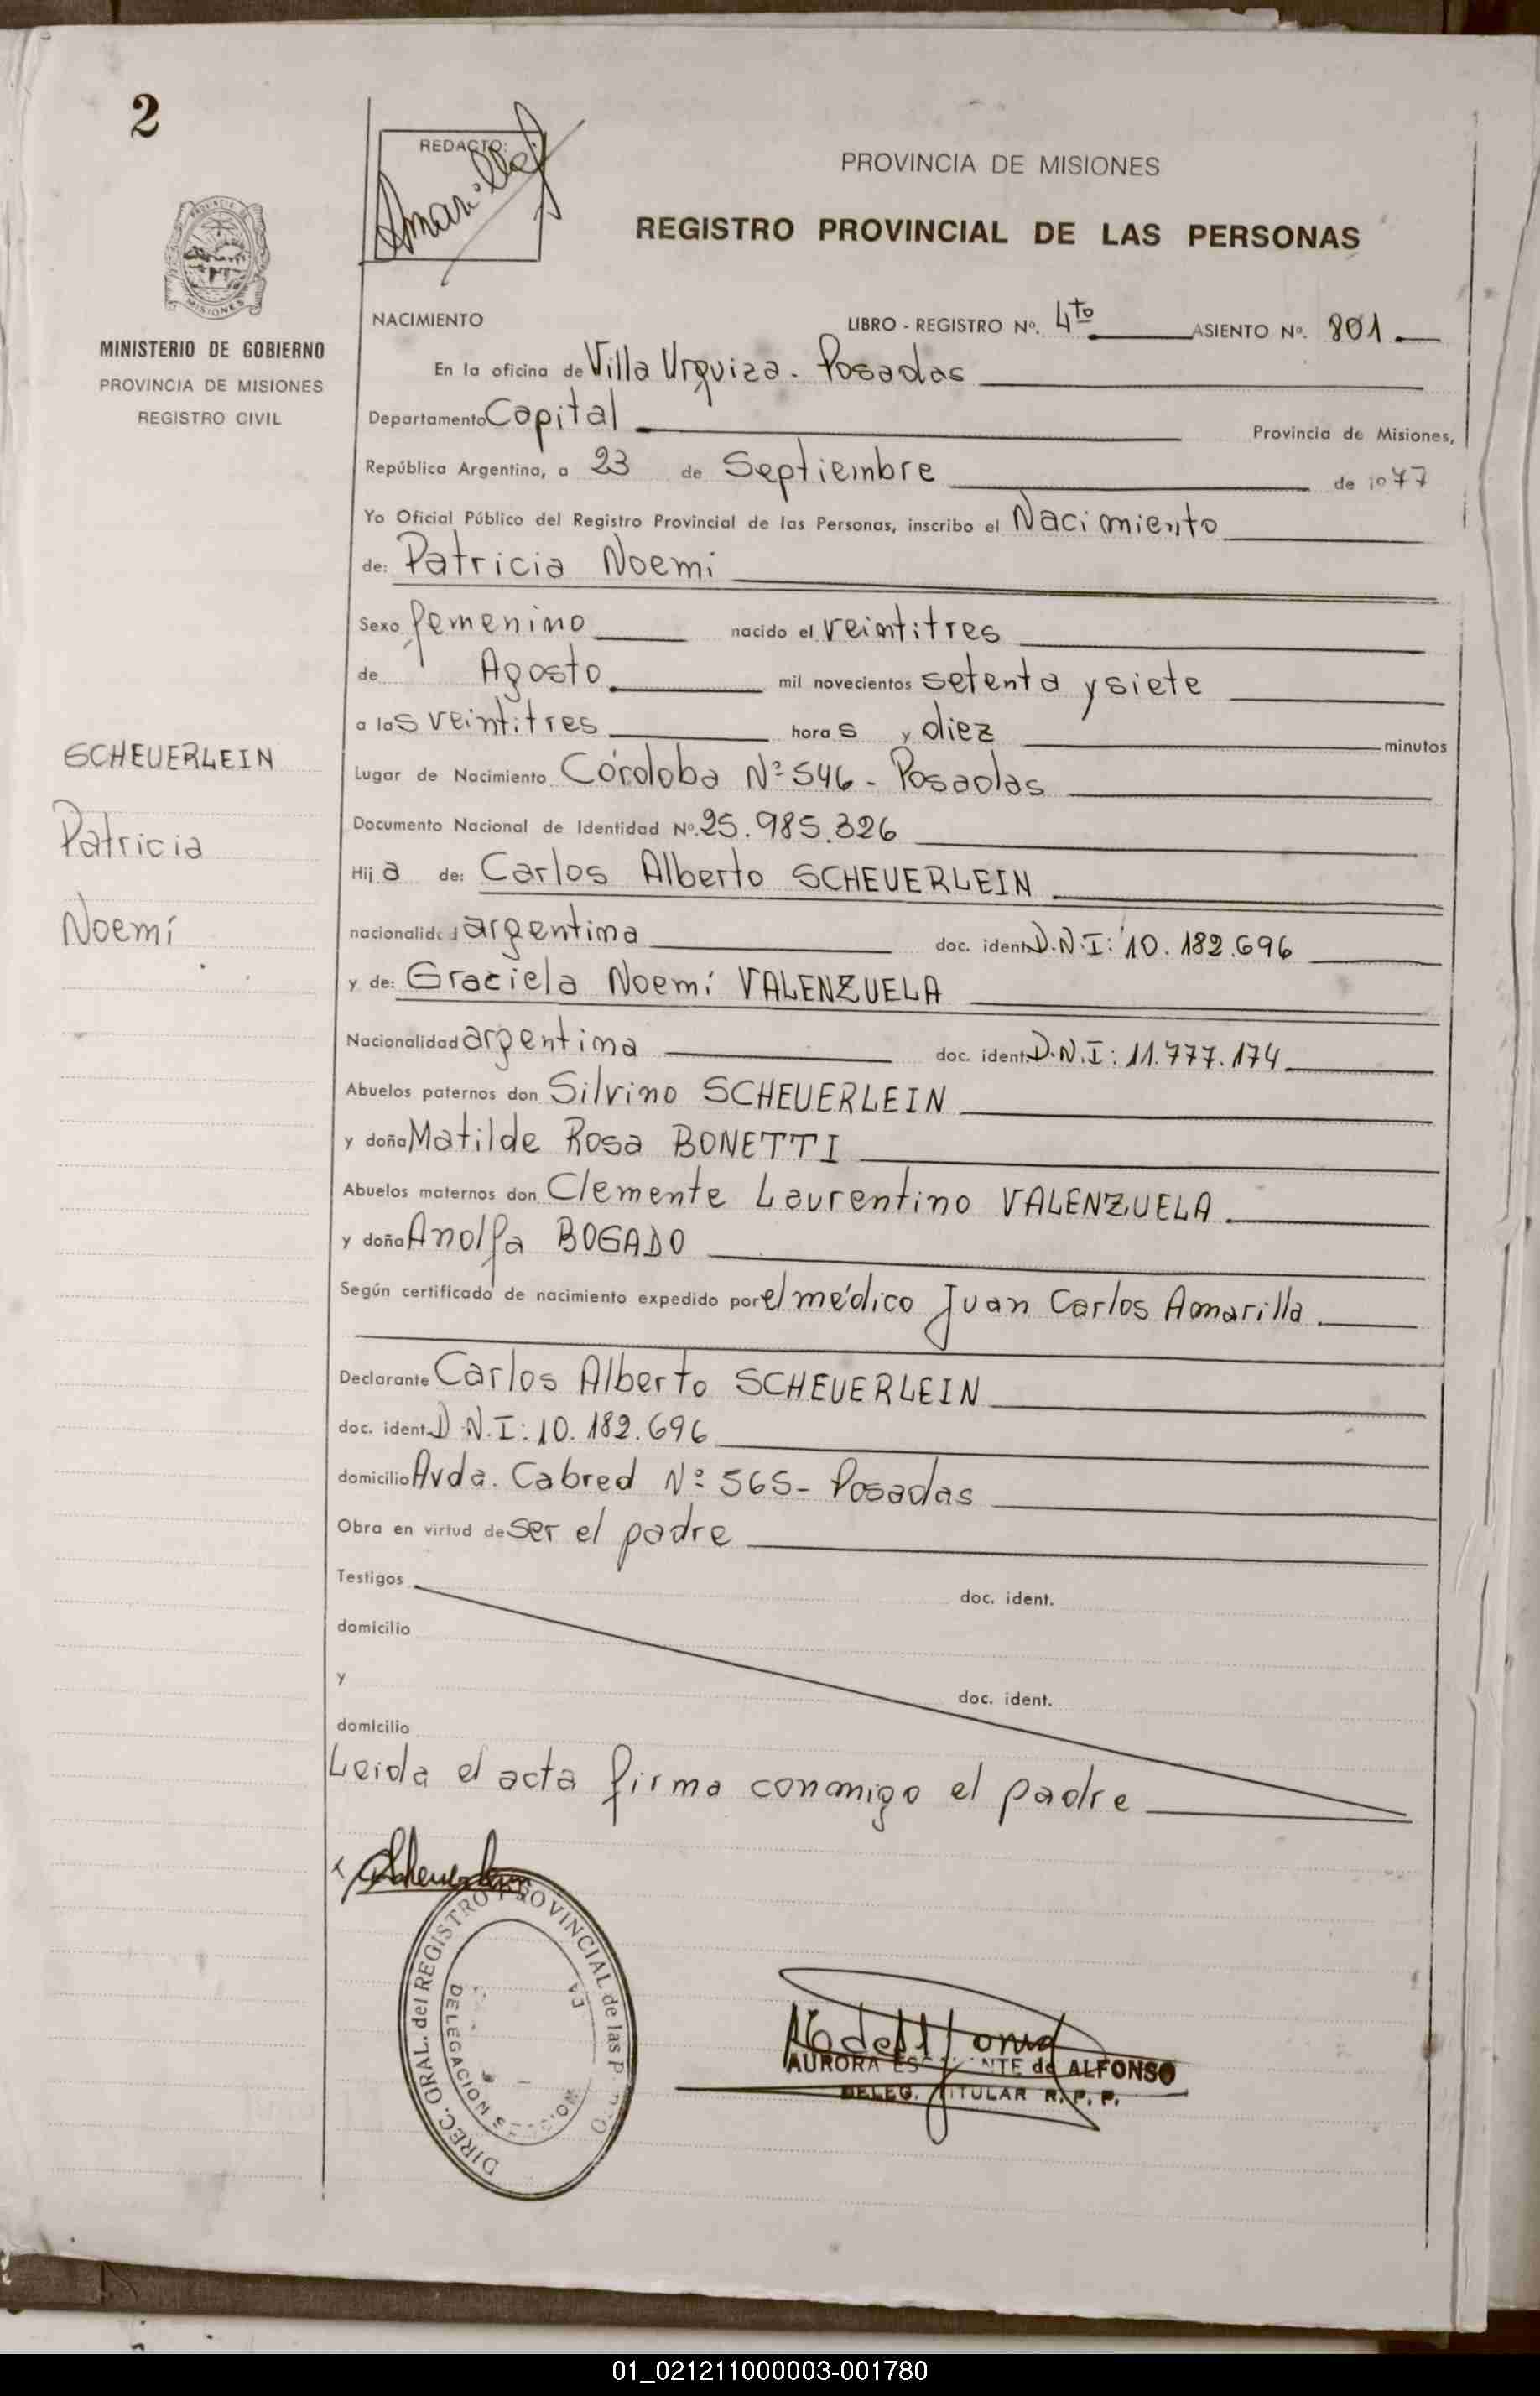 2
REDACTO:
Amarilla
PROVINCIA DE MISIONES
REGISTRO PROVINCIAL DE LAS PERSONAS
MINISTERIO DE GOBIERNO
PROVINCIA DE MISIONES
REGISTRO CIVIL
NACIMIENTO LIBRO - REGISTRO Nº. 4to ASIENTO Nº. 801
En la oficina de Villa Urquiza - Posadas
Departamento Capital Provincia de Misiones,
República Argentina, a 23 de Septiembre de 1977
Yo Oficial Público del Registro Provincial de las Personas, inscribo el Nacimiento
de: Patricia Noemi
Sexo femenino nacido el veintitres
de Agosto mil novecientos setenta y siete
a las veintitres horas y diez minutos
SCHEUERLEIN
Patricia
Noemí
Lugar de Nacimiento Córdoba Nº 546 - Posadas
Documento Nacional de Identidad Nº. 25.985.326
Hija de: Carlos Alberto SCHEUERLEIN
nacionalidad argentina doc. ident. D.N.I: 10.182.696
y de: Graciela Noemí VALENZUELA
Nacionalidad argentina doc. ident. D.N.I: 11.777.174
Abuelos paternos don Silvino SCHEUERLEIN
y doña Matilde Rosa BONETTI
Abuelos maternos don Clemente Laurentino VALENZUELA
y doña Anolfa BOGADO
Según certificado de nacimiento expedido por el médico Juan Carlos Amarilla
Declarante Carlos Alberto SCHEUERLEIN
doc. ident. D.N.I: 10.182.696
domicilio Avda. Cabred Nº 565 - Posadas
Obra en virtud de ser el padre
Testigos doc. ident.
domicilio
y doc. ident.
domicilio
Leida el acta firma conmigo el padre
DIREC. GRAL. del REGISTRO PROVINCIAL de las
DELEGACION
AURORA de ALFONSO
DELEG. TITULAR R. P. P.
01_021211000003-001780